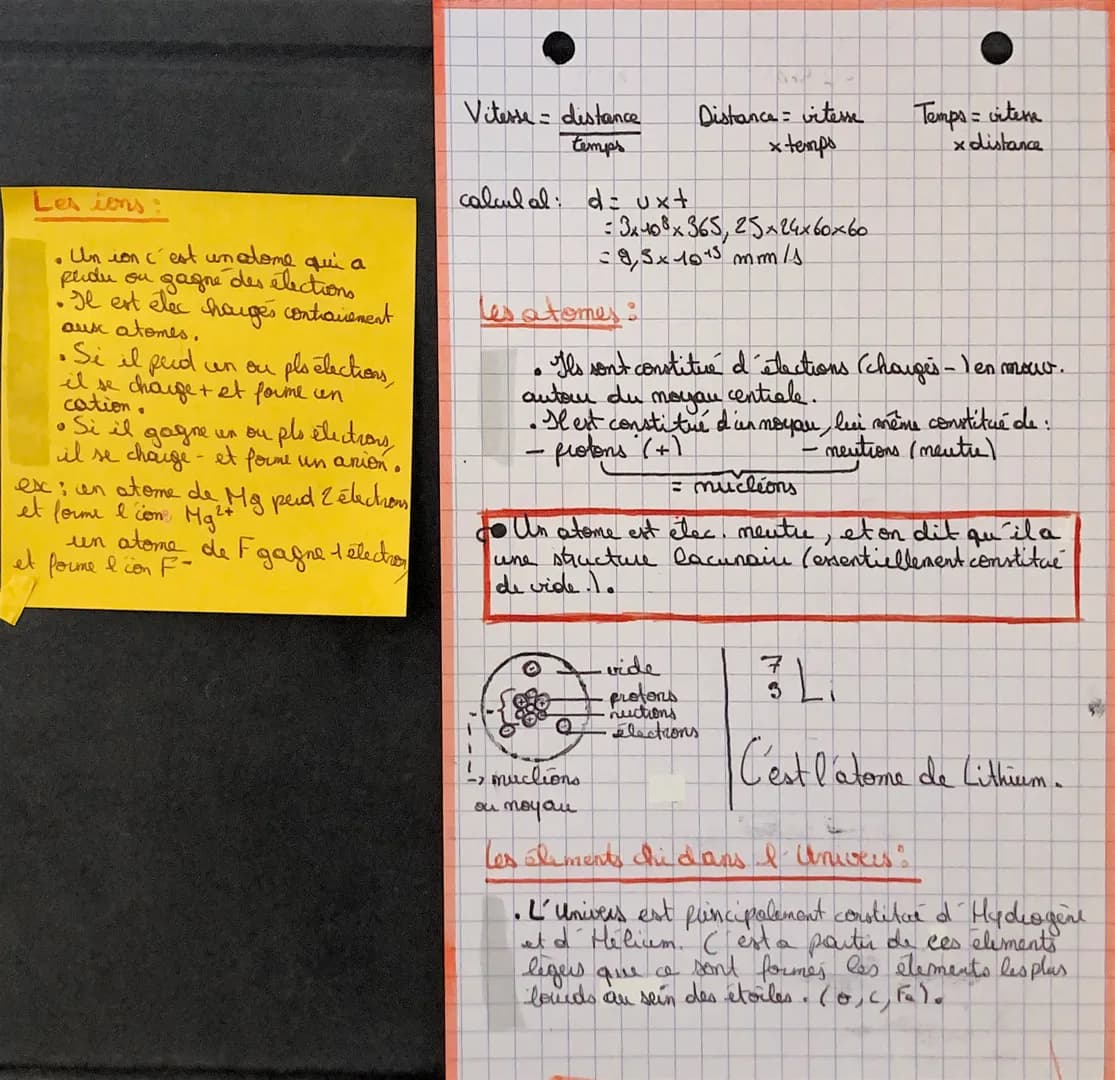 Les ions :
• Un ion c'est un atome qui a
perdu ou gagné des électrons
• Il est élec chargés contrairement
aux atomes.
• Si il perd un ou pls électrons,
il se charge + et forme un
cation.
• Si il gagne un ou pls électrons,
il se charge - et forme un anion.
ex : un atome de Mg perd 2 électrons
et forme l'ion Mg²⁺
un atome de F gagne 1 électron
et forme l'ion F⁻
Vitesse = distance / temps Distance = vitesse Temps = vitesse
x temps x distance
calcul al : d = v x t
= 3 x 10⁸ x 365,25 x 24 x 60 x 60
= 9,5 x 10¹⁵ mm/s
Les atomes :
• Ils sont constitué d'électrons (chargés -) en mouv.
autour du noyau centrale.
• Il est constitué d'un noyau, lui même constitué de :
- protons (+) - neutrons (neutre)
= nucléons
• Un atome est élec. neutre, et on dit qu'il a
une structure lacunaire (essentiellement constitué
de vide.).
vide
protons
nutrons
électrons
-> nucléons
ou noyau
7
3 Li
C'est l'atome de Lithium.
Les élements chi dans l'Univers :
• L'Univers est principalement constitué d'Hydrogène
et d'Hélium. C'est a partir de ces élements
légers que ce sont formés les élements les plus
lourds au sein des étoiles. (O, C, Fe).